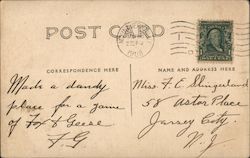 POST CARD
1908
CORRESPONDENCE HERE
NAME AND ADDRESS HERE
Made a dandy
place for a game
of Fox & Geese
F G
Miss F. E. Slingerland
58 Astor Place
Jersey City.
N. J.